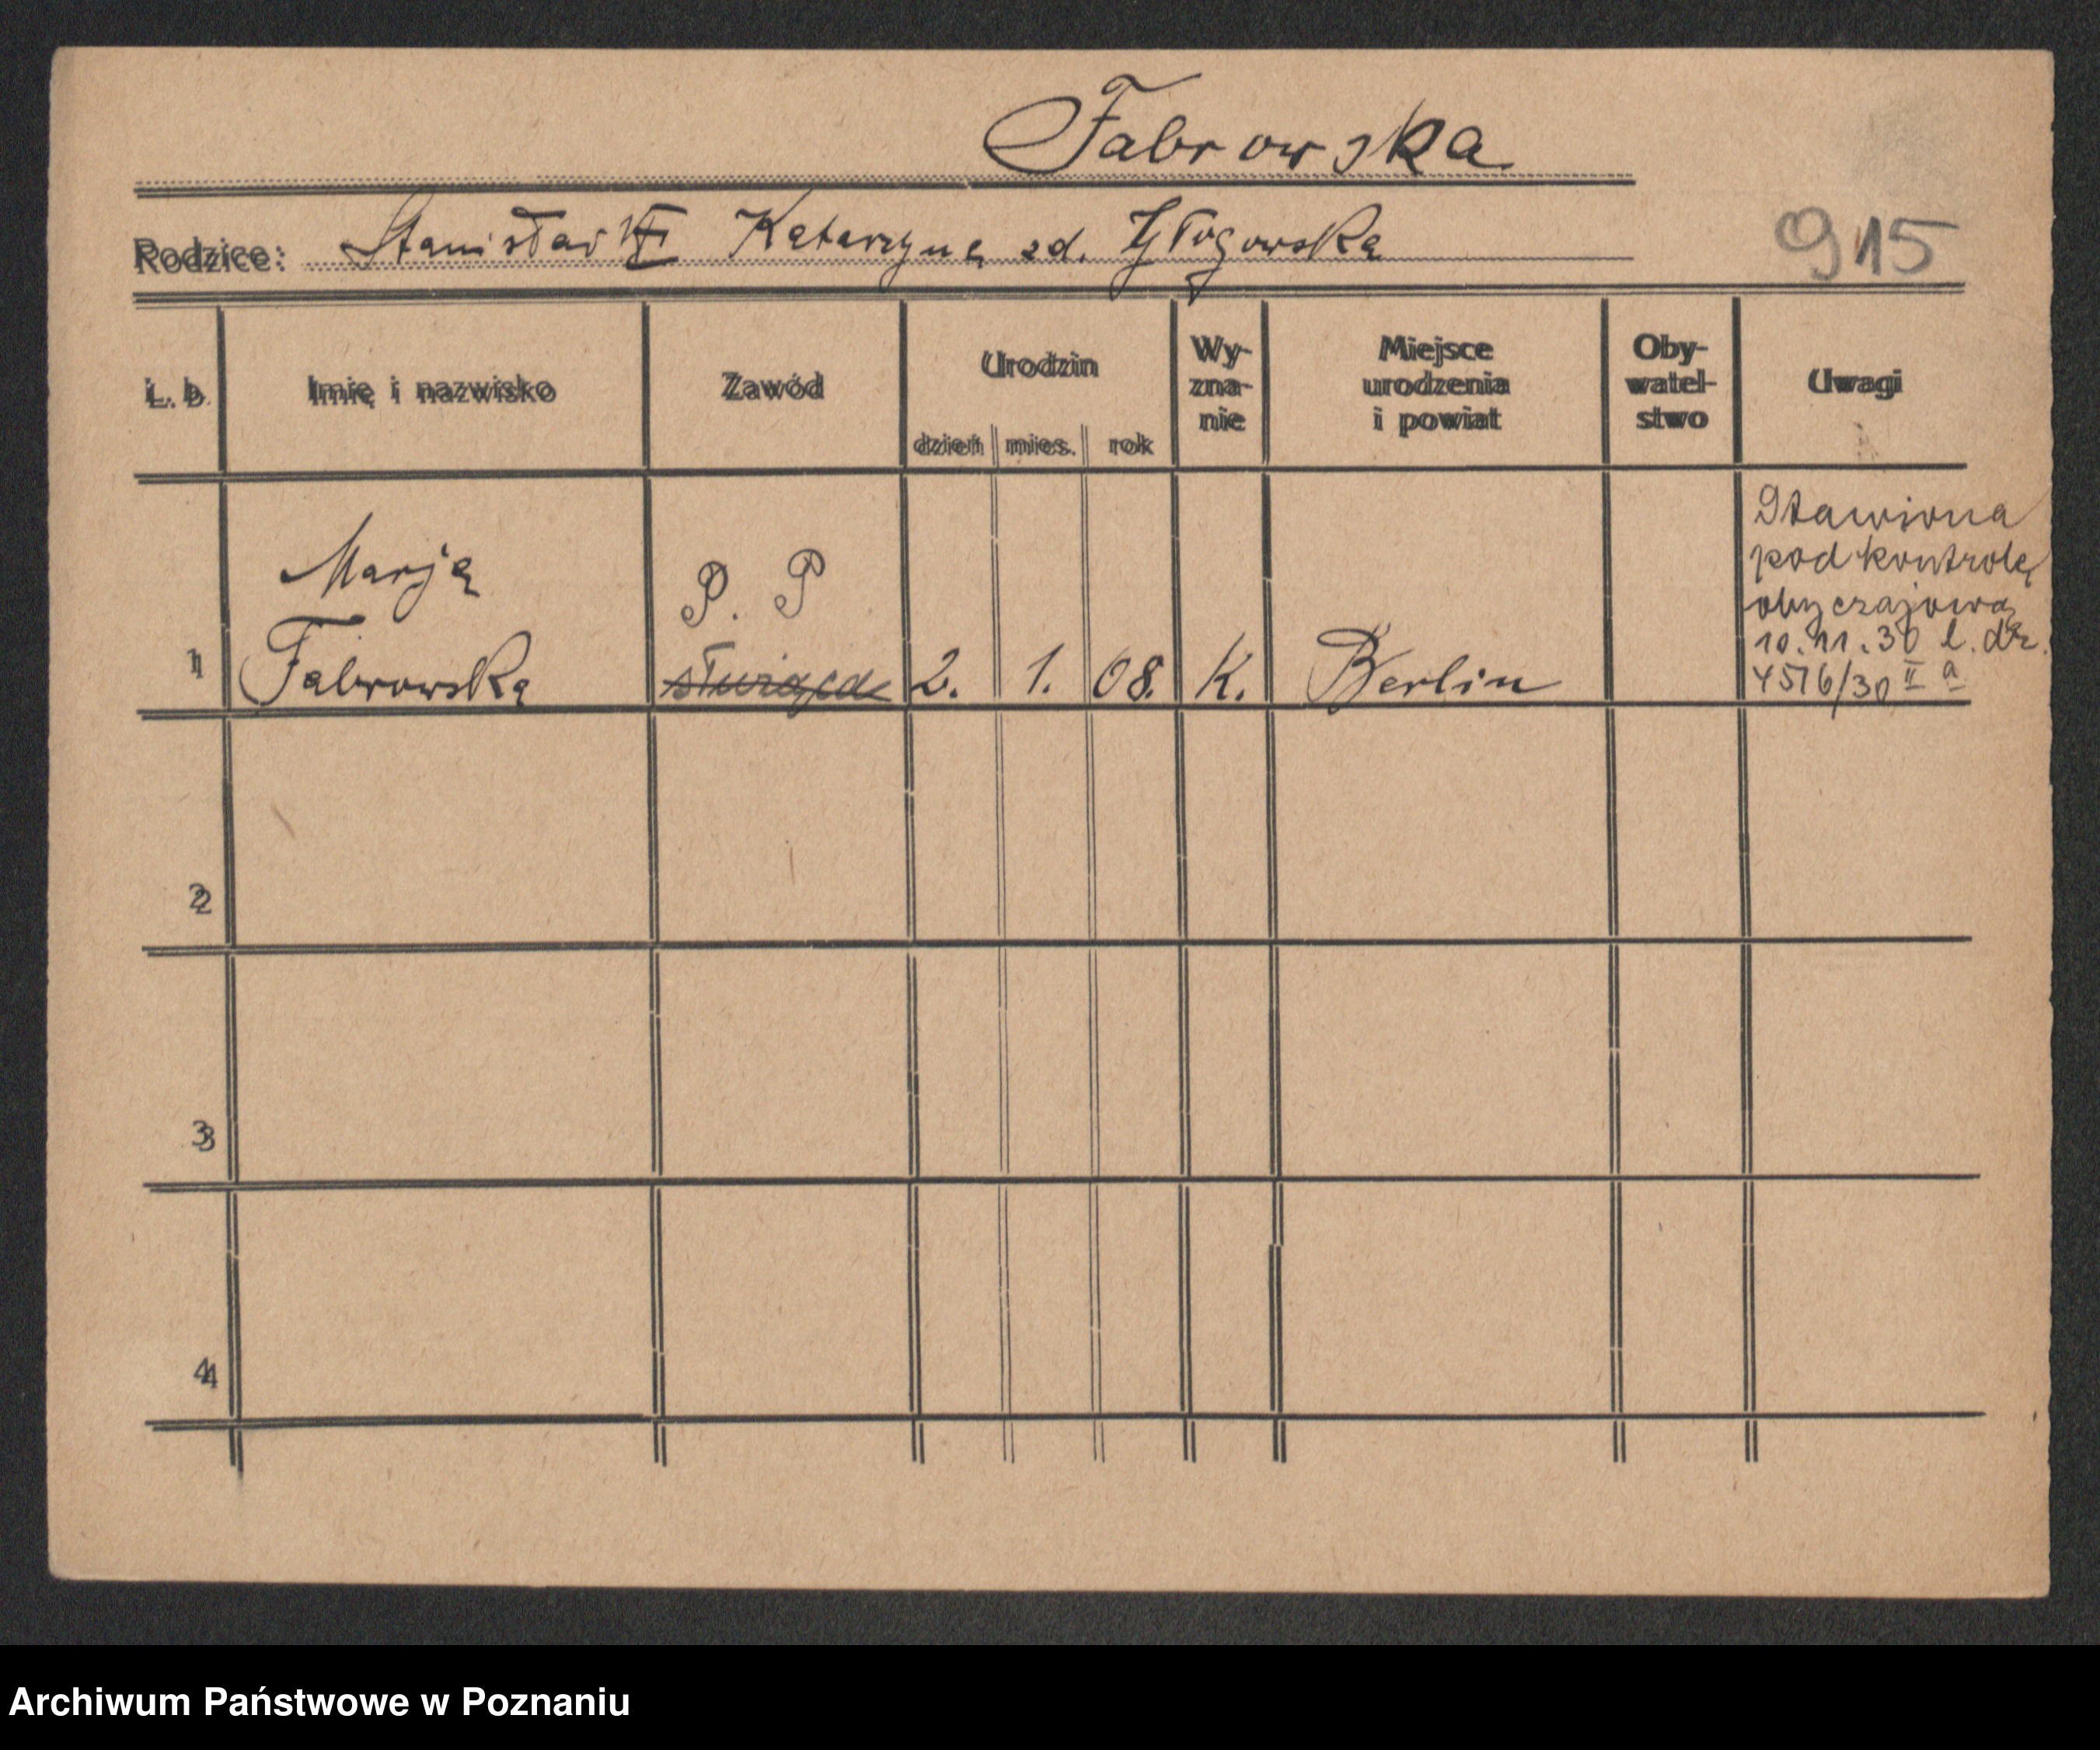 Fabrowska
Rodzice: Stanisław Katarzyna zd. Głogowska
915
L. b. Imię i nazwisko Zawód Urodzin dzień mies. rok Wy-znanie Miejsce urodzenia i powiat Oby-watel-stwo Uwagi
1
Marja
Fabrowska
P. P
służąca
2. 1. 08. K. Berlin
Stawiona
pod kontrolę
obyczajową
10.11.30 l. dz.
4516/30 II a
2
3
4
Archiwum Państwowe w Poznaniu